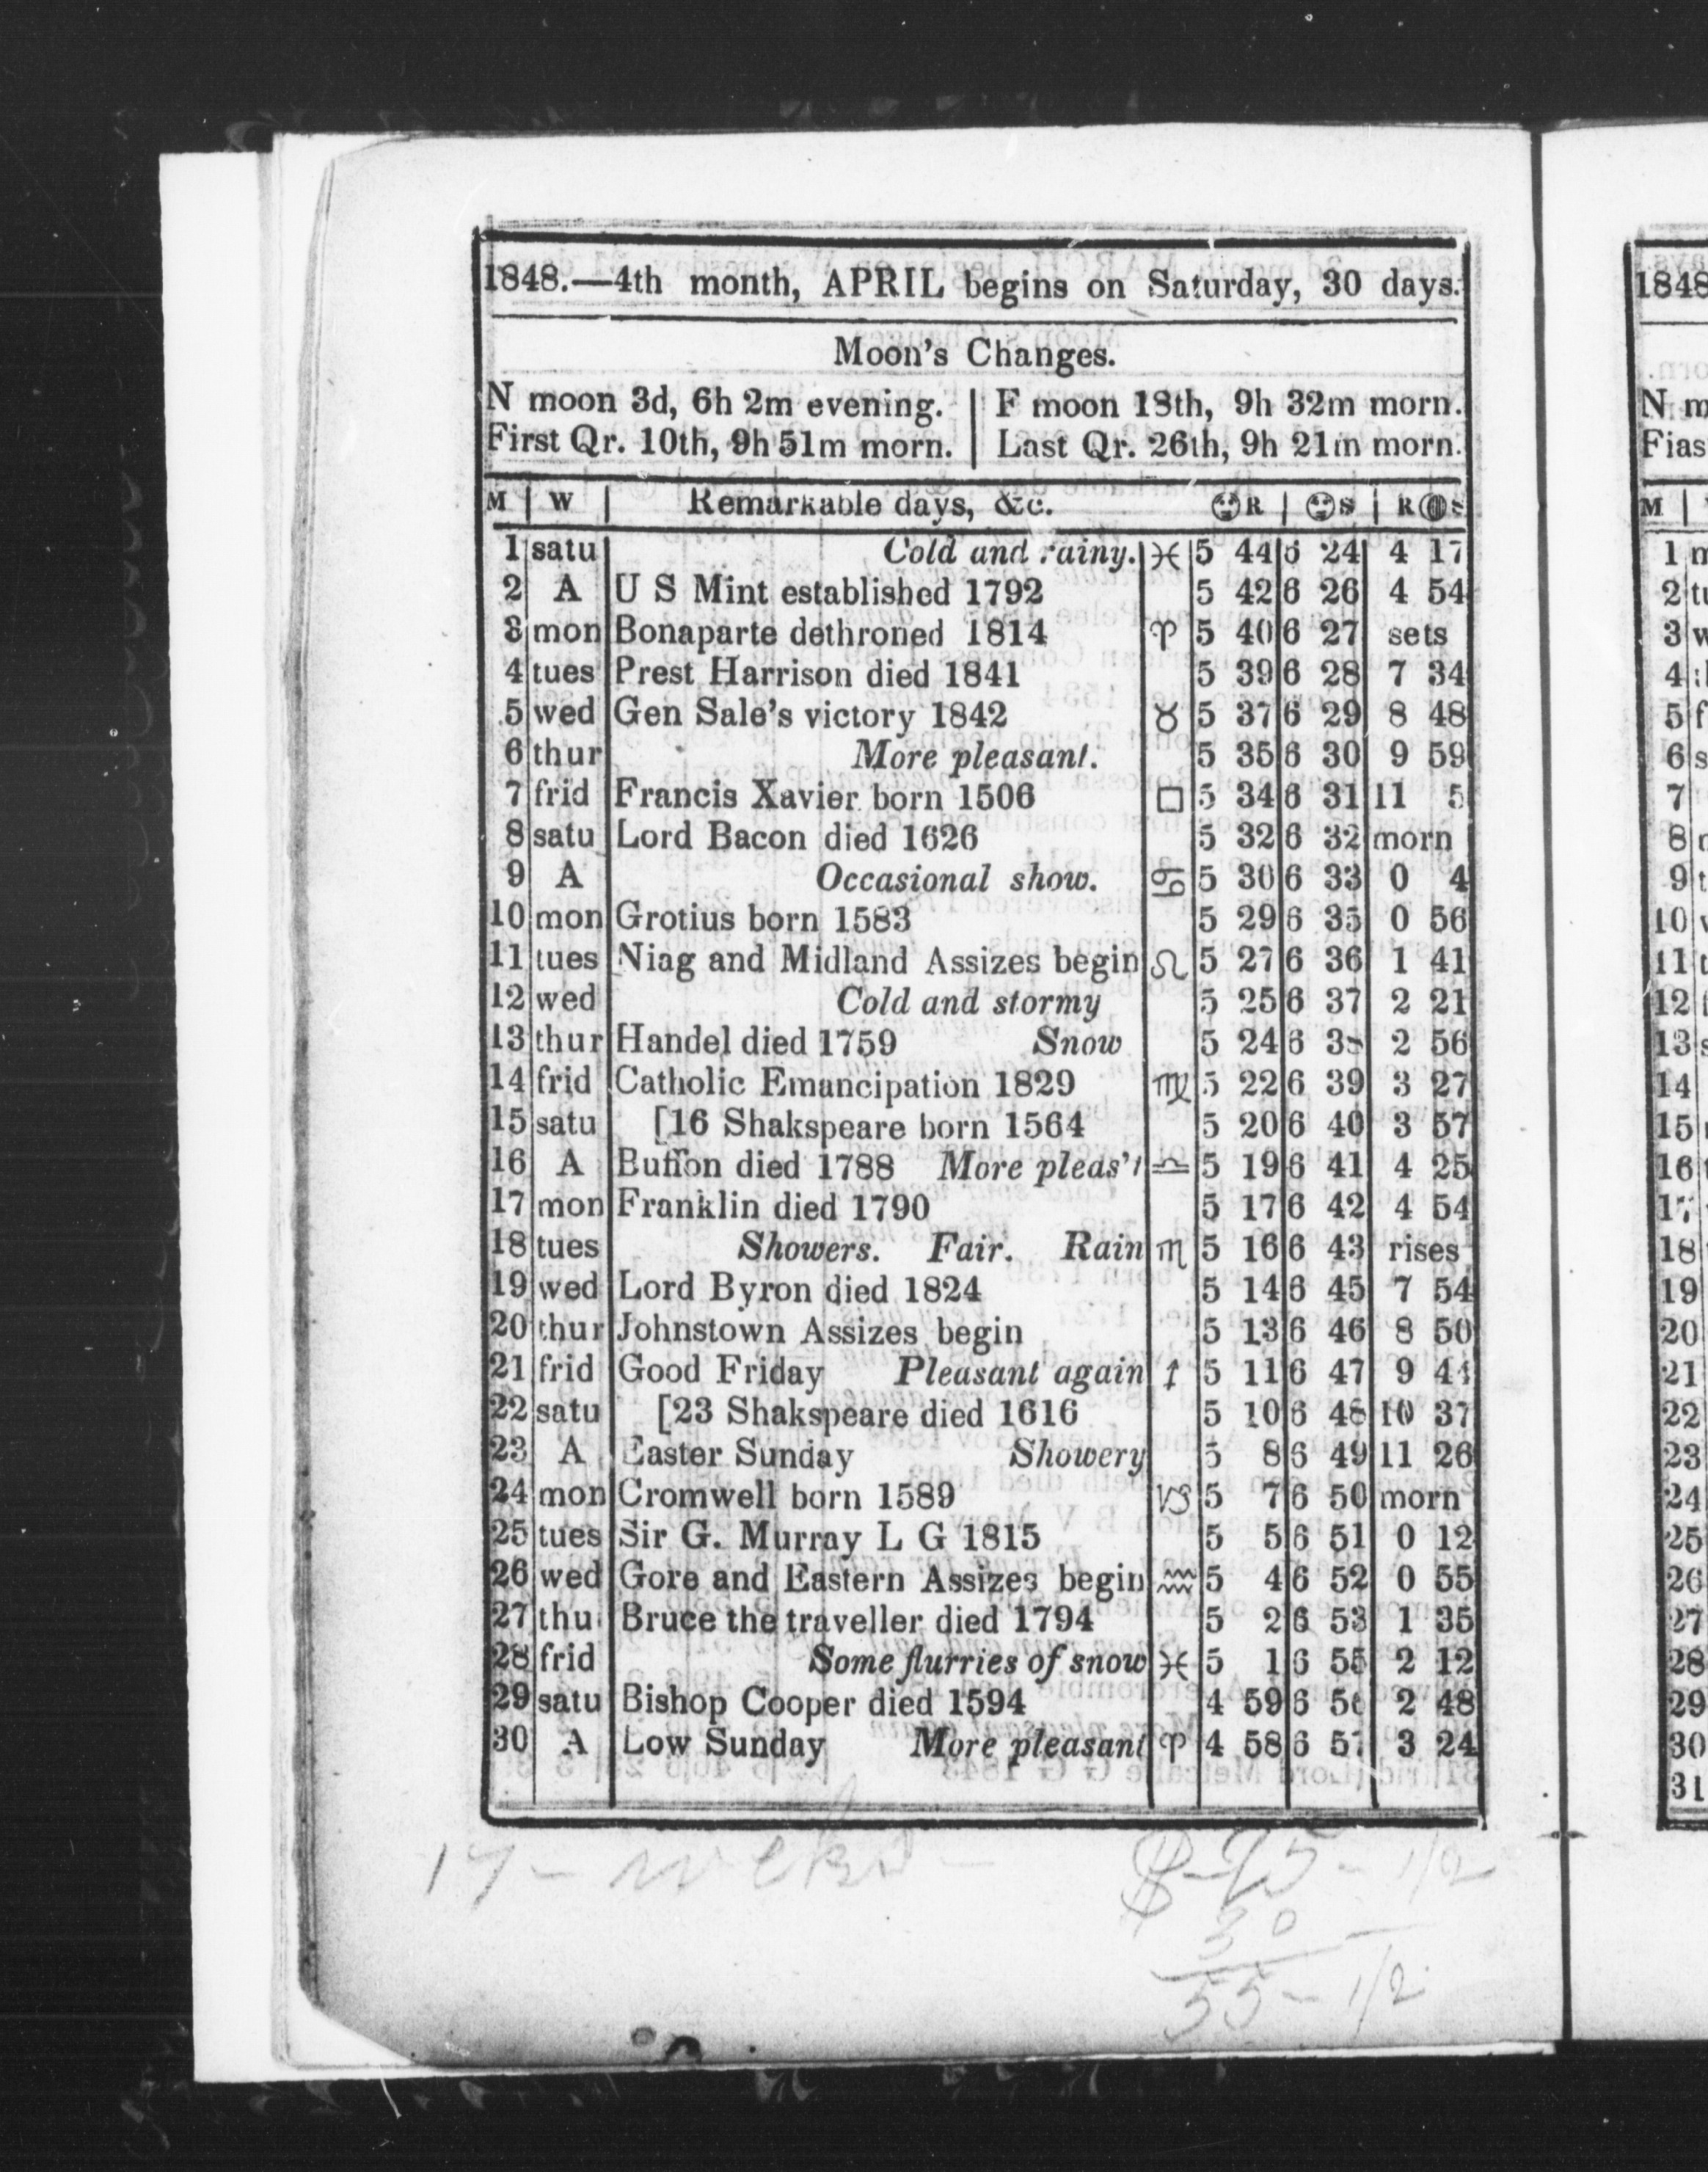 1848.—4th month, APRIL begins on Saturday, 30 days.
Moon's Changes.
N moon 3d, 6h 2m evening. | F moon 18th, 9h 32m morn.
First Qr. 10th, 9h 51m morn. | Last Qr. 26th, 9h 21m morn.
M | W | Remarkable days, &c. R | S | R S
1 satu Cold and rainy. ♓ 5 44 6 24 4 17
2 A U S Mint established 1792 5 42 6 26 4 54
3 mon Bonaparte dethroned 1814 ♈ 5 40 6 27 sets
4 tues Prest Harrison died 1841 5 39 6 28 7 34
5 wed Gen Sale's victory 1842 ♉ 5 37 6 29 8 48
6 thur More pleasant. 5 35 6 30 9 59
7 frid Francis Xavier born 1506 □ 5 34 6 31 11 5
8 satu Lord Bacon died 1626 5 32 6 32 morn
9 A Occasional show. ♋ 5 30 6 33 0 4
10 mon Grotius born 1583 5 29 6 35 0 56
11 tues Niag and Midland Assizes begin ♌ 5 27 6 36 1 41
12 wed Cold and stormy 5 25 6 37 2 21
13 thur Handel died 1759 Snow 5 24 6 38 2 56
14 frid Catholic Emancipation 1829 ♍ 5 22 6 39 3 27
15 satu [16 Shakspeare born 1564 5 20 6 40 3 57
16 A Buffon died 1788 More pleas't ♎ 5 19 6 41 4 25
17 mon Franklin died 1790 5 17 6 42 4 54
18 tues Showers. Fair. Rain ♏ 5 16 6 43 rises
19 wed Lord Byron died 1824 5 14 6 45 7 54
20 thur Johnstown Assizes begin 5 13 6 46 8 50
21 frid Good Friday Pleasant again ♐ 5 11 6 47 9 44
22 satu [23 Shakspeare died 1616 5 10 6 48 10 37
23 A Easter Sunday Showery 5 8 6 49 11 26
24 mon Cromwell born 1589 ♑ 5 7 6 50 morn
25 tues Sir G. Murray L G 1815 5 5 6 51 0 12
26 wed Gore and Eastern Assizes begin ♒ 5 4 6 52 0 55
27 thu Bruce the traveller died 1794 5 2 6 53 1 35
28 frid Some flurries of snow ♓ 5 1 6 55 2 12
29 satu Bishop Cooper died 1594 4 59 6 56 2 48
30 A Low Sunday More pleasant ♈ 4 58 6 57 3 24
$-25-1/2
30
55-1/2
1848
N m
Fias
M
1
2
3
4
5
6
7
8
9
10
11
12
13
14
15
16
17
18
19
20
21
22
23
24
25
26
27
28
29
30
31